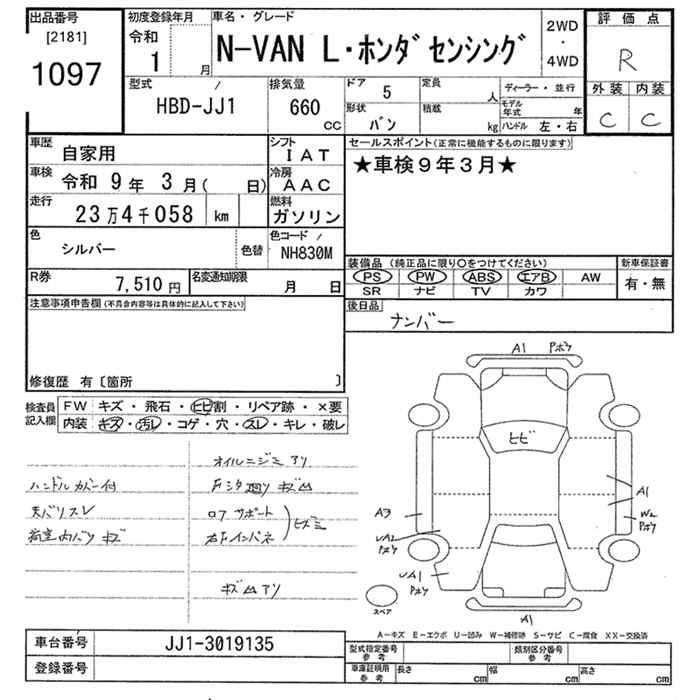 出品番号
[2181]
1097
初度登録年月
令和
1 月
車名・グレード
N-VAN L・ホンダセンシング
2WD
・
4WD
評価点
R
外装 内装
C C
型式
HBD-JJ1
排気量
660
CC
ドア 5
形状
バン
定員
人
積載
kg
ディーラー・並行
モデル年式 年
ハンドル 左・右
車歴
自家用
シフト
IAT
車検
令和 9年 3月( 日)
冷房
AAC
走行
23万4千058 km
燃料
ガソリン
色
シルバー
色替
色コード
NH830M
R券
7,510円
名変通知期限
月 日
セールスポイント(正常に機能するものに限ります)
★車検9年3月★
装備品(純正品に限り○をつけてください)
PS PW ABS エアB AW
SR ナビ TV カワ
新車保証書
有・無
後日品
ナンバー
注意事項申告欄(不具合内容等は具体的に記入して下さい)
修復歴 有〔箇所 〕
検査員
記入欄
FW キズ・飛石・ヒビ割・リペア跡・×要
内装 キズ・汚レ・コゲ・穴・スレ・キレ・破レ
オイルニジミアリ
ハンドルカバー付
天バリスレ
ロアサポート
右Fインパネ
キズ凹アリ
A1
ヒビ
A1
A3
W2
A1
スペア
A-キズ E-エクボ U-凹み W-補修跡 S-サビ C-腐食 XX-交換済
車台番号 JJ1-3019135
登録番号
型式指定番号
参考
類別区分番号
参考
車庫証明用
参考
長さ cm
幅 cm
高さ cm